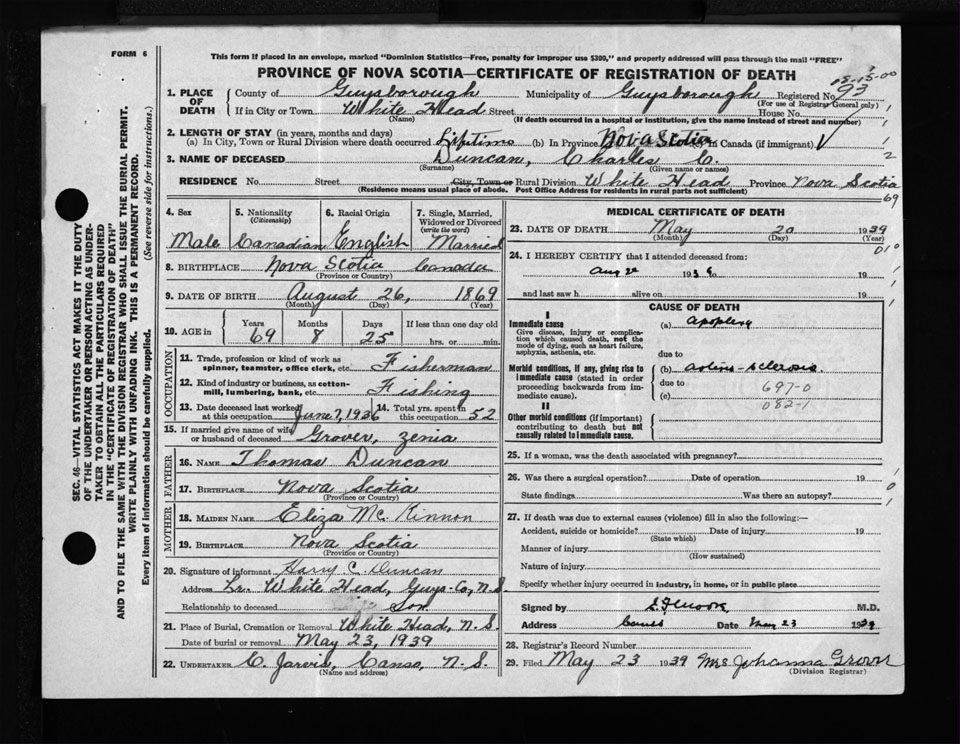 FORM 6
This form if placed in an envelope, marked "Dominion Statistics—Free, penalty for improper use $300," and properly addressed will pass through the mail "FREE"
PROVINCE OF NOVA SCOTIA—CERTIFICATE OF REGISTRATION OF DEATH
18-15-00
1. PLACE OF DEATH
County of Guysborough Municipality of Guysborough Registered No. 93
(For use of Registrar General only)
If in City or Town White Head Street House No.
(Name) (If death occurred in a hospital or institution, give the name instead of street and number)
2. LENGTH OF STAY (in years, months and days)
(a) In City, Town or Rural Division where death occurred Lifetime (b) In Province Nova Scotia in Canada (if immigrant)
3. NAME OF DECEASED Duncan, Charles C.
(Surname) (Given name or names)
RESIDENCE No. Street City, Town or Rural Division White Head Province Nova Scotia
(Residence means usual place of abode. Post Office Address for residents in rural parts not sufficient)
69
4. Sex Male
5. Nationality (Citizenship) Canadian
6. Racial Origin English
7. Single, Married, Widowed or Divorced (write the word) Married
8. BIRTHPLACE Nova Scotia Canada
(Province or Country)
9. DATE OF BIRTH August 26, 1869
(Month) (Day) (Year)
10. AGE in Years 69 Months 8 Days 25 If less than one day old hrs. or min.
OCCUPATION
11. Trade, profession or kind of work as spinner, teamster, office clerk, etc. Fisherman
12. Kind of industry or business, as cotton-mill, lumbering, bank, etc. Fishing
13. Date deceased last worked at this occupation June 7, 1936 14. Total yrs. spent in this occupation 52
15. If married give name of wife or husband of deceased Grover, Zenia
FATHER
16. NAME Thomas Duncan
17. BIRTHPLACE Nova Scotia
(Province or Country)
MOTHER
18. MAIDEN NAME Eliza Mc Kinnon
19. BIRTHPLACE Nova Scotia
(Province or Country)
20. Signature of informant Harry C. Duncan
Address Lr. White Head, Guys. Co, N.S.
Relationship to deceased Son
21. Place of Burial, Cremation or Removal White Head, N.S.
Date of burial or removal May 23, 1939
22. UNDERTAKER C. Jarvis, Canso, N.S.
(Name and address)
MEDICAL CERTIFICATE OF DEATH
23. DATE OF DEATH May 20 1939
(Month) (Day) (Year)
24. I HEREBY CERTIFY that I attended deceased from:
Aug 193 19
and last saw h alive on 19
CAUSE OF DEATH
I
Immediate cause
Give disease, injury or complication which caused death, not the mode of dying, such as heart failure, asphyxia, asthenia, etc.
(a) apoplexy
due to
Morbid conditions, if any, giving rise to immediate cause (stated in order proceeding backwards from immediate cause).
(b) arterio-sclerosis
due to 697-0
(c) 082-1
II
Other morbid conditions (if important) contributing to death but not causally related to immediate cause.
25. If a woman, was the death associated with pregnancy?
26. Was there a surgical operation? Date of operation 19
State findings Was there an autopsy?
27. If death was due to external causes (violence) fill in also the following:—
Accident, suicide or homicide? Date of injury 19
(State which)
Manner of injury
(How sustained)
Nature of injury
Specify whether injury occurred in industry, in home, or in public place
Signed by M.D.
Address Canso Date May 23 1939
28. Registrar's Record Number
29. Filed May 23 1939 Mrs Johanna Grover
(Division Registrar)
SEC. 46—VITAL STATISTICS ACT MAKES IT THE DUTY
OF THE UNDERTAKER OR PERSON ACTING AS UNDER-
TAKER TO OBTAIN ALL THE PARTICULARS REQUIRED
IN THE "CERTIFICATE OF REGISTRATION OF DEATH"
AND TO FILE THE SAME WITH THE DIVISION REGISTRAR WHO SHALL ISSUE THE BURIAL PERMIT.
WRITE PLAINLY WITH UNFADING INK. THIS IS A PERMANENT RECORD.
Every item of information should be carefully supplied. (See reverse side for instructions.)